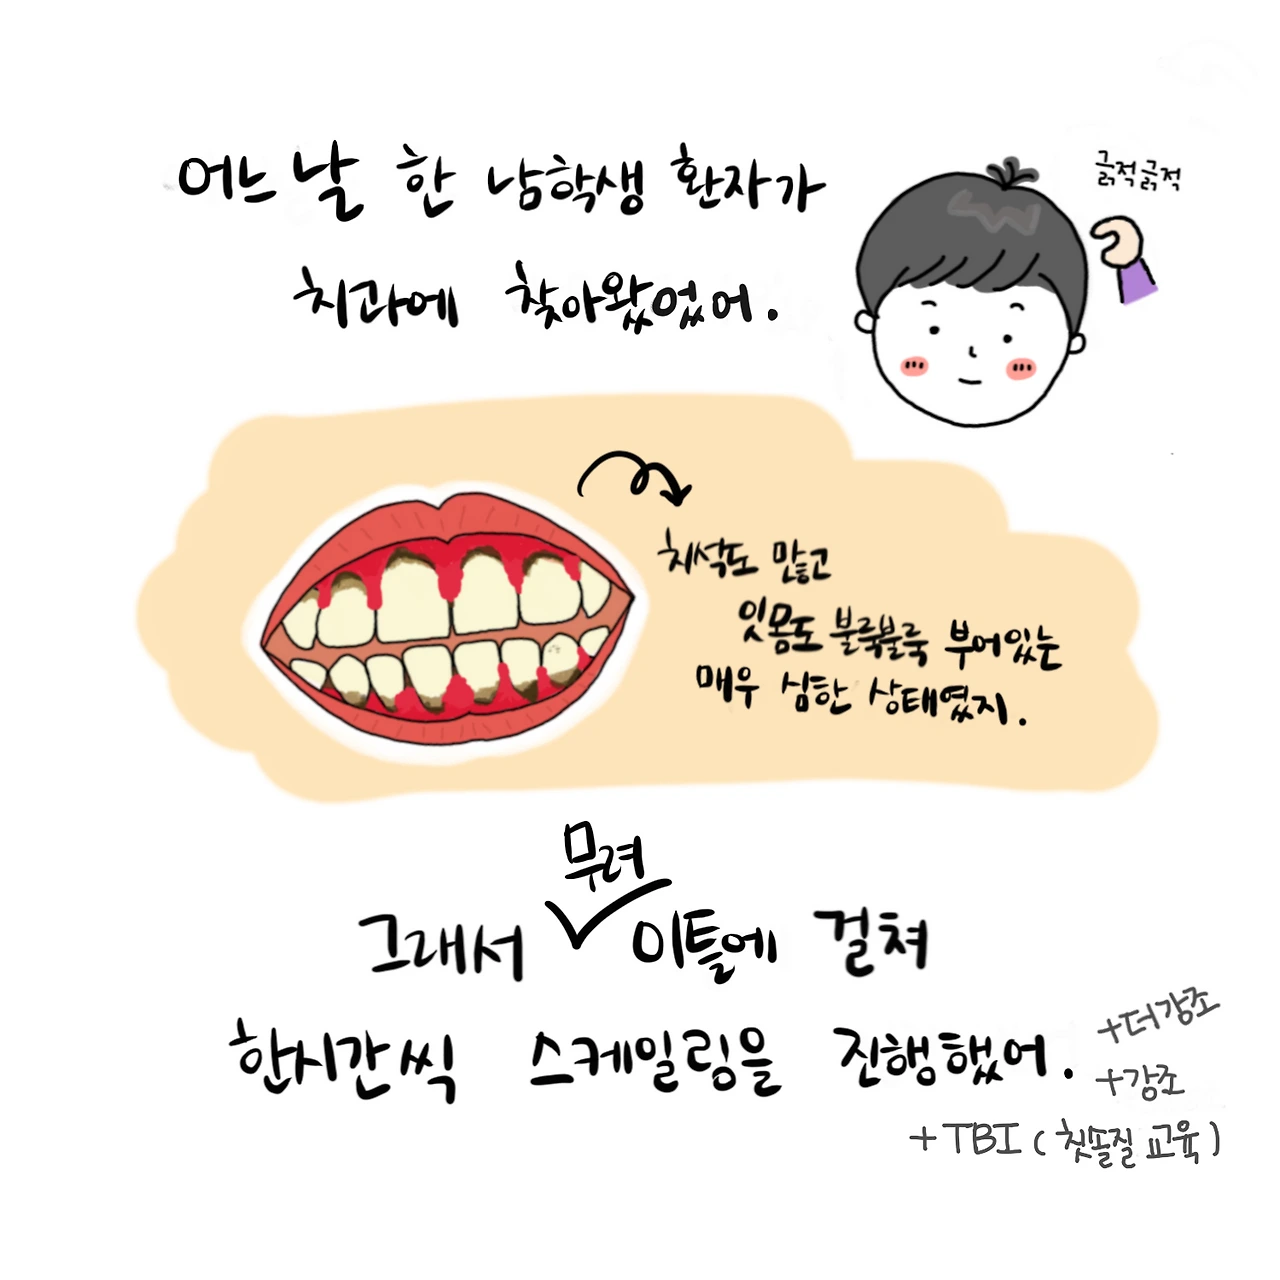 어느 날 한 남학생 환자가
긁적긁적
치과에 찾아왔었어.
치석도 많고
잇몸도 불룩불룩 부어있는
매우 심한 상태였지.
무려
그래서 이틀에 걸쳐
한시간씩 스케일링을 진행했어.
+더강조
+강조
+TBI (칫솔질 교육)